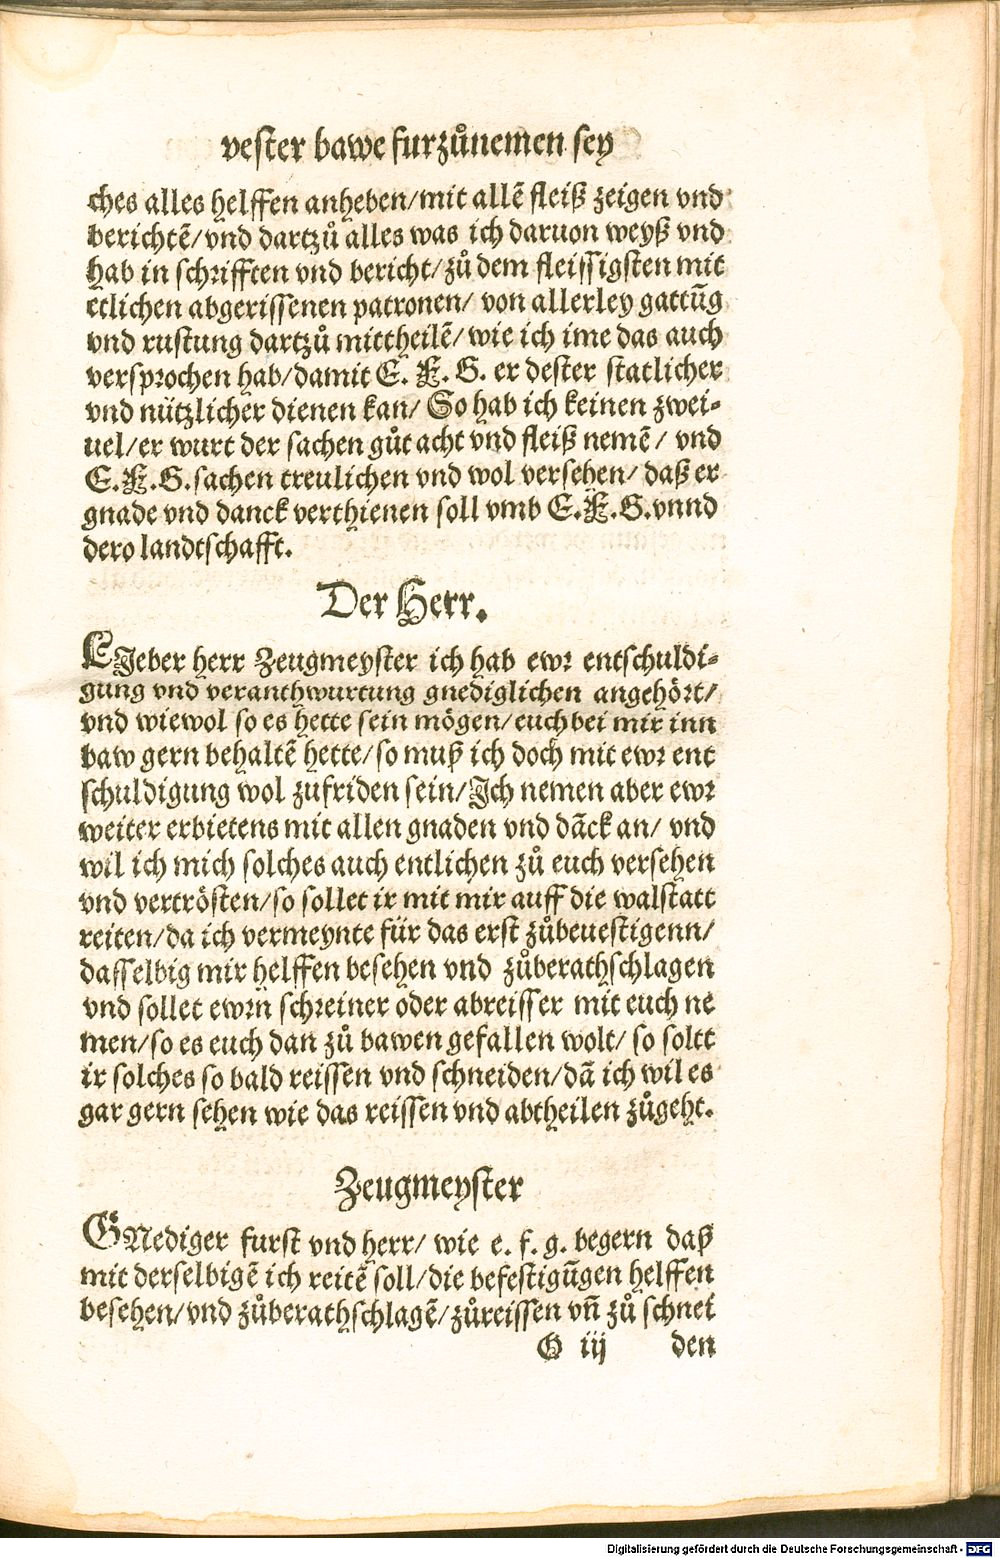 vester bawe furzůnemen sey
ches alles helffen anheben/mit allẽ fleiß zeigen vnd
berichtẽ/vnd dartzů alles was ich daruon weyß vnd
hab in schrifften vnd bericht/zů dem fleissigsten mit
etlichen abgerissenen patronen/ von allerley gattũg
vnd rustung dartzů mittheilẽ/wie ich ime das auch
versprochen hab/damit E. F. G. er dester statlicher
vnd nützlicher dienen kan/ So hab ich keinen zwei-
uel/er wurt der sachen gůt acht vnd fleiß nemẽ/ vnd
E.F.G.sachen treulichen vnd wol versehen/ daß er
gnade vnd danck verthienen soll vmb E.F.G.vnnd
dero landtschafft.
Der Herr.
LIeber herr Zeugmeyster ich hab ewr entschuldi-
gung vnd veranthwurtung gnediglichen angehört/
vnd wiewol so es hette sein mögen/euch bei mir inn
baw gern behaltẽ hette/so muß ich doch mit ewr ent
schuldigung wol zufriden sein/Ich nemen aber ewr
weiter erbietens mit allen gnaden vnd dãck an/ vnd
wil ich mich solches auch entlichen zů euch versehen
vnd vertrösten/so sollet ir mit mir auff die walstatt
reiten/da ich vermeynte für das erst zůbeuestigenn/
dasselbig mir helffen besehen vnd zůberathschlagen
vnd sollet ewrn schreiner oder abreisser mit euch ne
men/so es euch dan zů bawen gefallen wolt/ so soltt
ir solches so bald reissen vnd schneiden/dã ich wil es
gar gern sehen wie das reissen vnd abtheilen zůgeht.
Zeugmeyster
GNediger furst vnd herr/ wie e. f. g. begern daß
mit derselbigẽ ich reitẽ soll/die befestigũgen helffen
besehen/vnd zůberathschlagẽ/zůreissen vñ zů schnei
G iij den
Digitalisierung gefördert durch die Deutsche Forschungsgemeinschaft - DFG